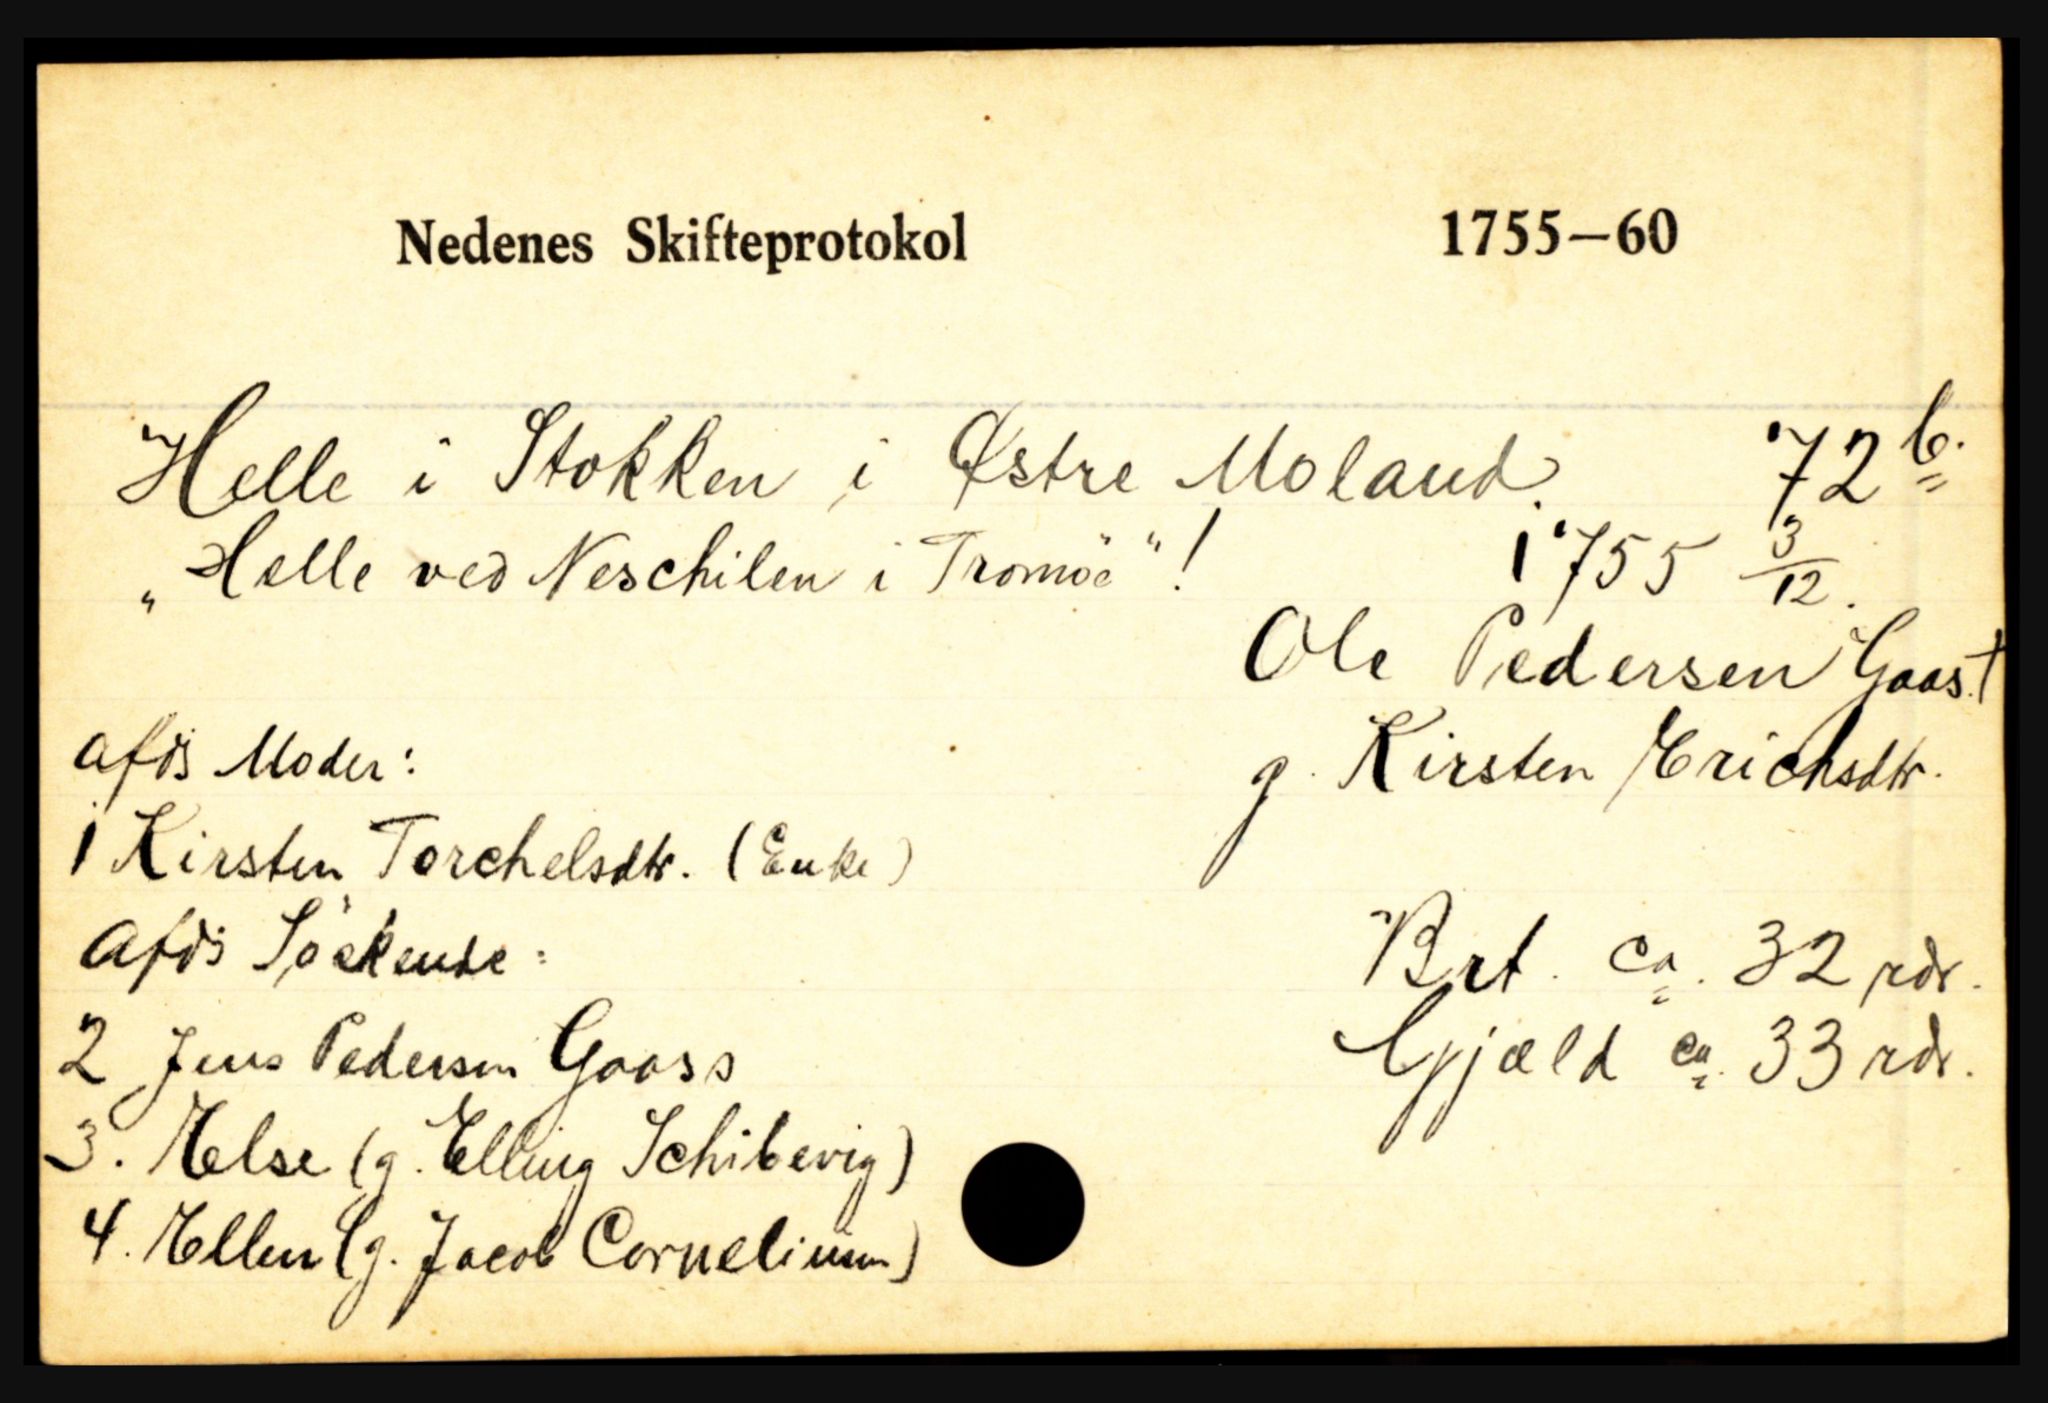 Nedenes Skifteprotokol 1755—60
Helle i Stokken i Østre Moland. 72 b.
„Helle ved Neschilen i Tromöe"! 1755 3/12.
Ole Pedersen Gaas †
g. Kirsten Erichsdtr.
afds Moder:
1 Kirsten Torchelsdtr. (Enke)
afds Söskende:
2 Jens Pedersen Gaass
3. Else (g. Elling Schibevig)
4. Ellen (g. Jacob Corneliusen)
Brt. ca. 32 rdr.
Gjæld ca. 33 rdr.